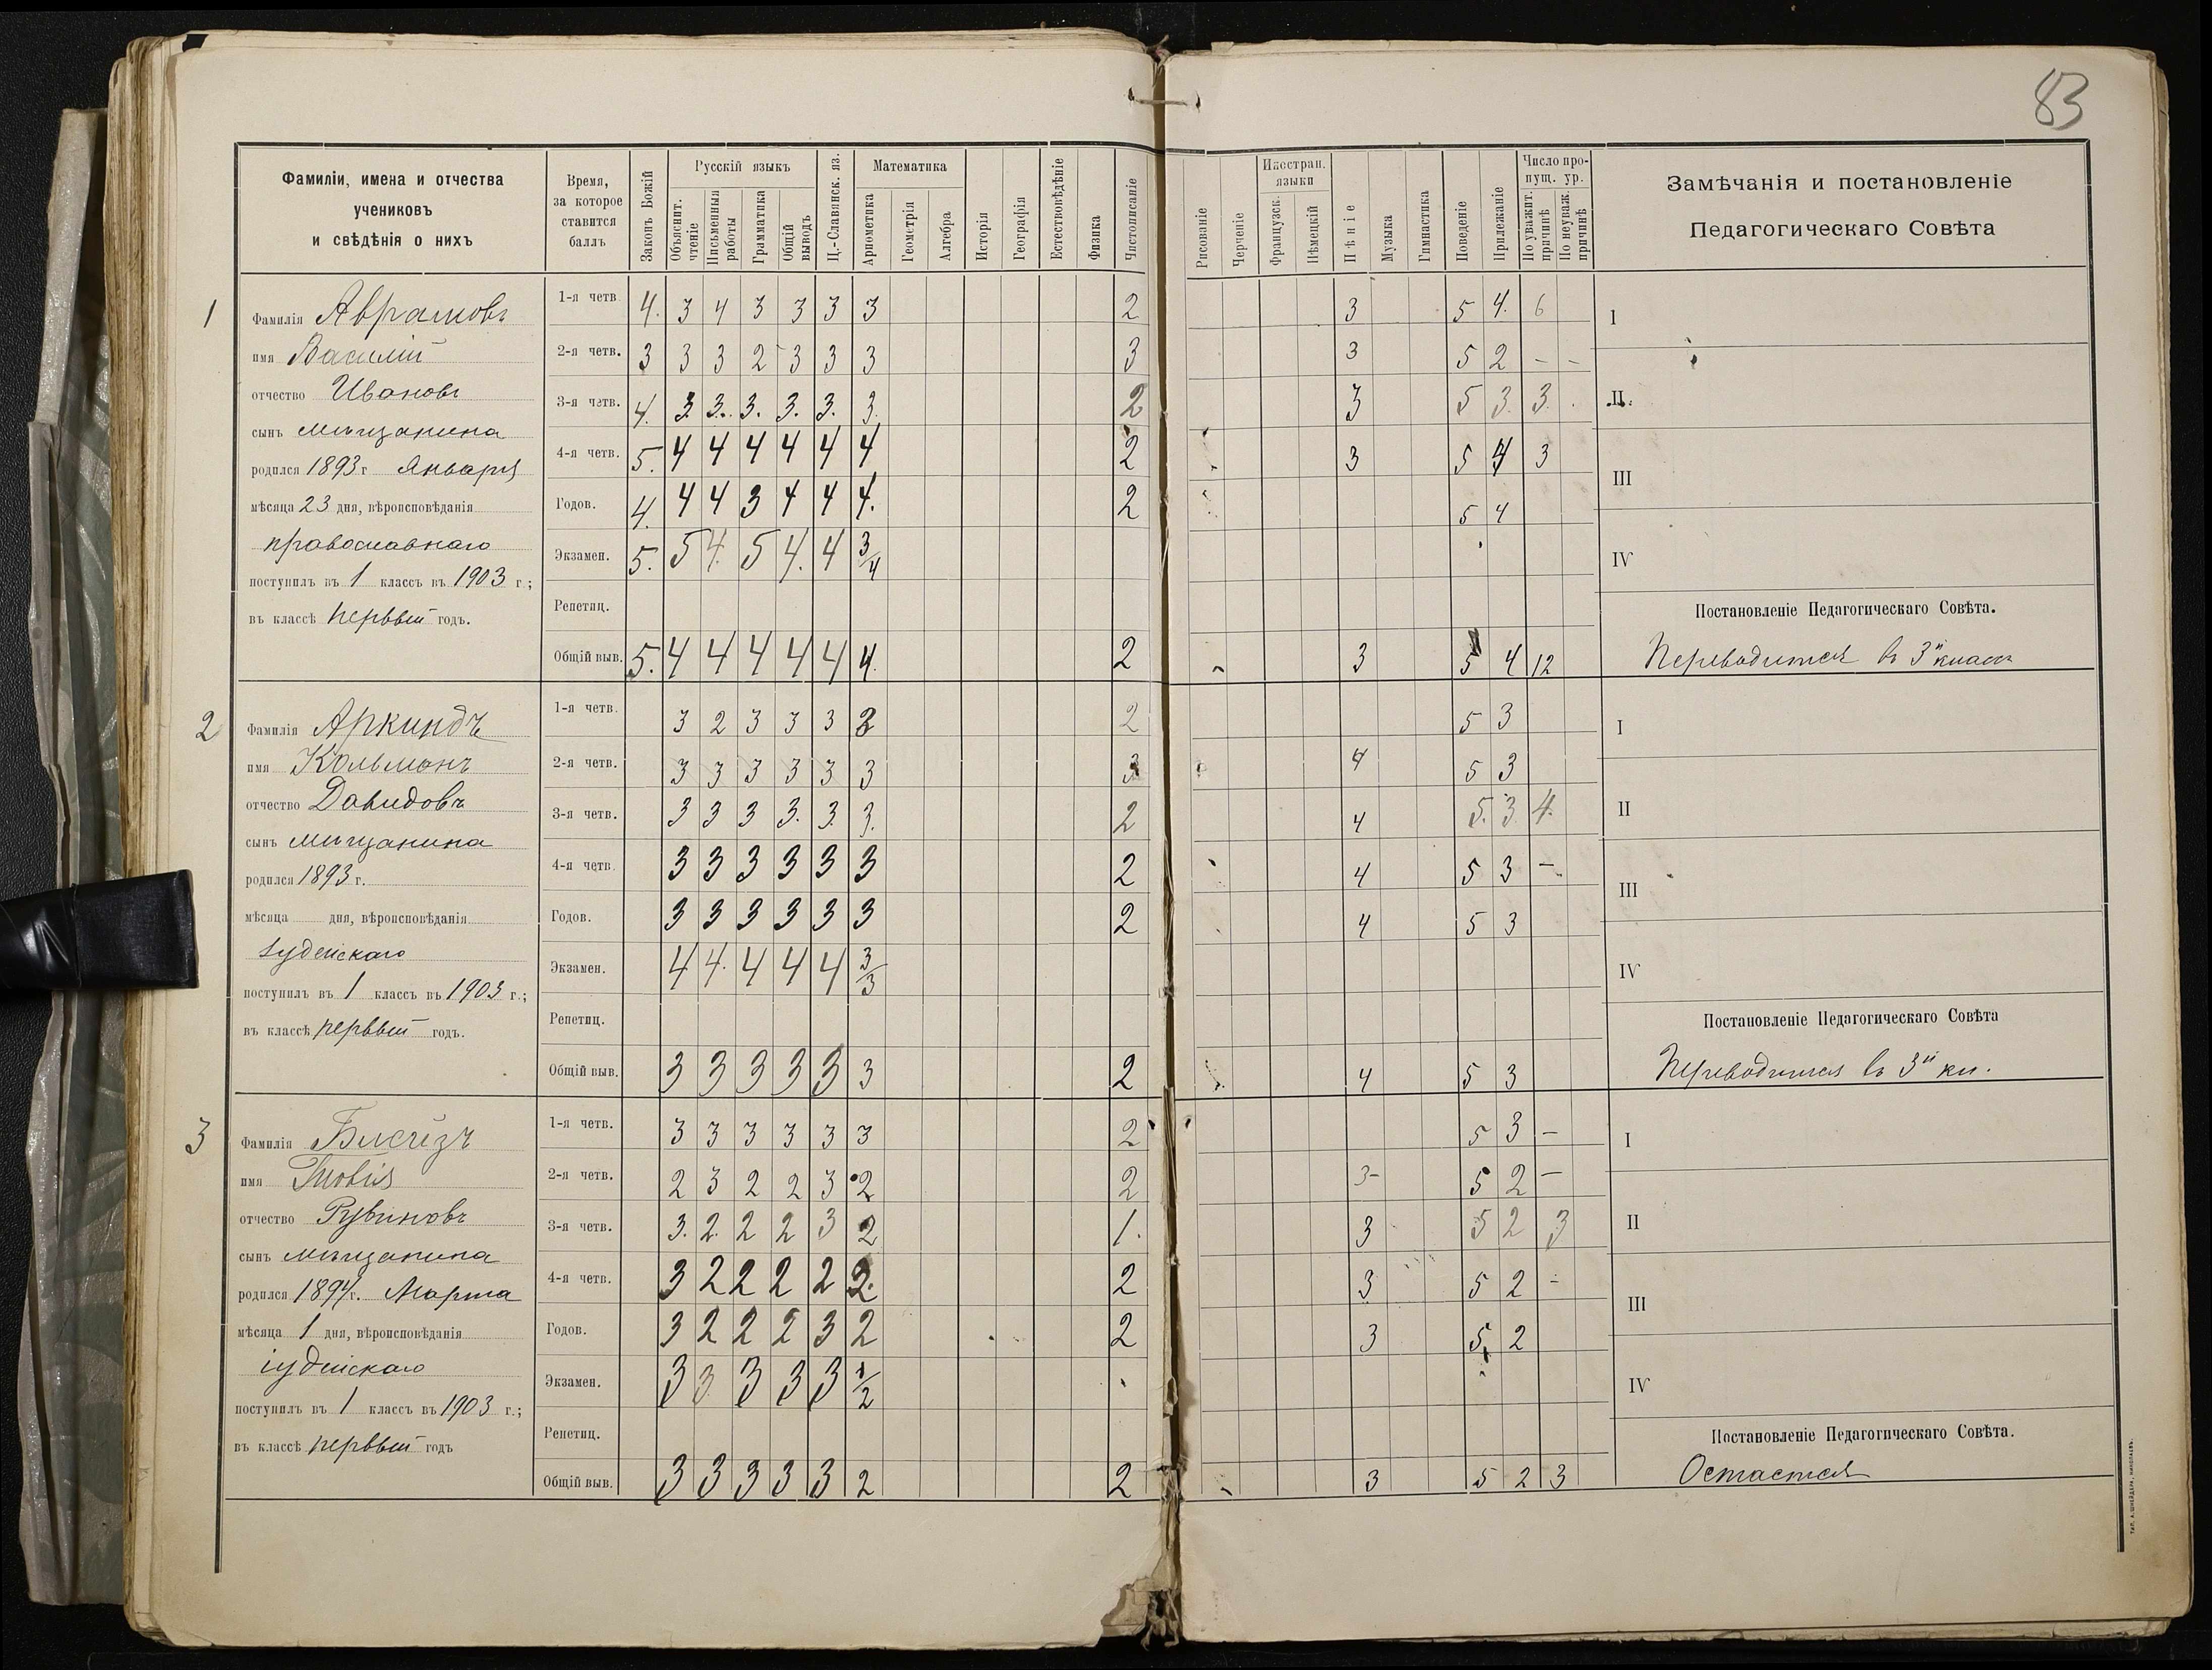 83
Фамиліи, имена и отчества
учениковъ
и свѣдѣнія о нихъ
Время,
за которое
ставится
баллъ
Законъ Божій
Русскій языкъ
Объяснит. чтеніе
Письменныя работы
Грамматика
Общій выводъ
Ц.-Славянск. яз.
Математика
Ариѳметика
Геометрія
Алгебра
Исторія
Географія
Естествовѣдѣніе
Физика
Чистописаніе
Рисованіе
Черченіе
Иностран. языки
Французск.
Нѣмецкій
Пѣніе
Музыка
Гимнастика
Поведеніе
Прилежаніе
Число пропущ. ур.
По уважит. причинѣ
По неуваж. причинѣ
Замѣчанія и постановленіе
Педагогическаго Совѣта
1
Фамилія Аврамовъ
имя Василій
отчество Ивановъ
сынъ мѣщанина
родился 1893 г Января
мѣсяца 23 дня, вѣроисповѣданія
православнаго
поступилъ въ 1 классъ въ 1903 г.;
въ классѣ первый годъ.
1-я четв. 4. 3 4 3 3 3 3 2 3 5 4. 6
2-я четв. 3 3 3 2 3 3 3 3 3 5 2 – –
3-я четв. 4. 3. 3. 3. 3. 3. 3. 2 3 5 3. 3.
4-я четв. 5. 4 4 4 4 4 4 2 3 5 4 3
Годов. 4. 4 4 3 4 4 4. 2 5 4
Экзамен. 5. 5 4. 5 4. 4 3/4
Репетиц.
Общій выв. 5. 4 4 4 4 4 4. 2 3 5 4 12
I
II
III
IV
Постановленіе Педагогическаго Совѣта.
Переводится въ 3й классъ
2
Фамилія Аркиндъ
имя Кальманъ
отчество Давидовъ
сынъ мѣщанина
родился 1893 г.
мѣсяца дня, вѣроисповѣданія
іудейскаго
поступилъ въ 1 классъ въ 1903 г.;
въ классѣ первый годъ.
1-я четв. 3 2 3 3 3 3 2 5 3
2-я четв. 3 3 3 3 3 3 3 4 5 3
3-я четв. 3 3 3 3. 3. 3. 2 4 5. 3. 4.
4-я четв. 3 3 3 3 3 3 2 4 5 3 –
Годов. 3 3 3 3 3 3 2 4 5 3
Экзамен. 4 4. 4 4 4 3/3
Репетиц.
Общій выв. 3 3 3 3 3 3 2 4 5 3
I
II
III
IV
Постановленіе Педагогическаго Совѣта
Переводится въ 3й кл.
3
Фамилія
имя
отчество Рувиновъ
сынъ мѣщанина
родился 1894 г. Марта
мѣсяца 1 дня, вѣроисповѣданія
іудейскаго
поступилъ въ 1 классъ въ 1903 г.;
въ классѣ первый годъ
1-я четв. 3 3 3 3 3 3 2 5 3 –
2-я четв. 2 3 2 2 3 2 2 3- 5 2 –
3-я четв. 3. 2. 2 2 3 2 1. 3 5 2 3
4-я четв. 3 2 2 2 2 2. 2 3 5 2 –
Годов. 3 2 2 2 3 2 2 3 5 2
Экзамен. 3 3. 3 3 3 1/2
Репетиц.
Общій выв. 3 3 3 3 3 2 2 3 5 2 3
I
II
III
IV
Постановленіе Педагогическаго Совѣта.
Остается